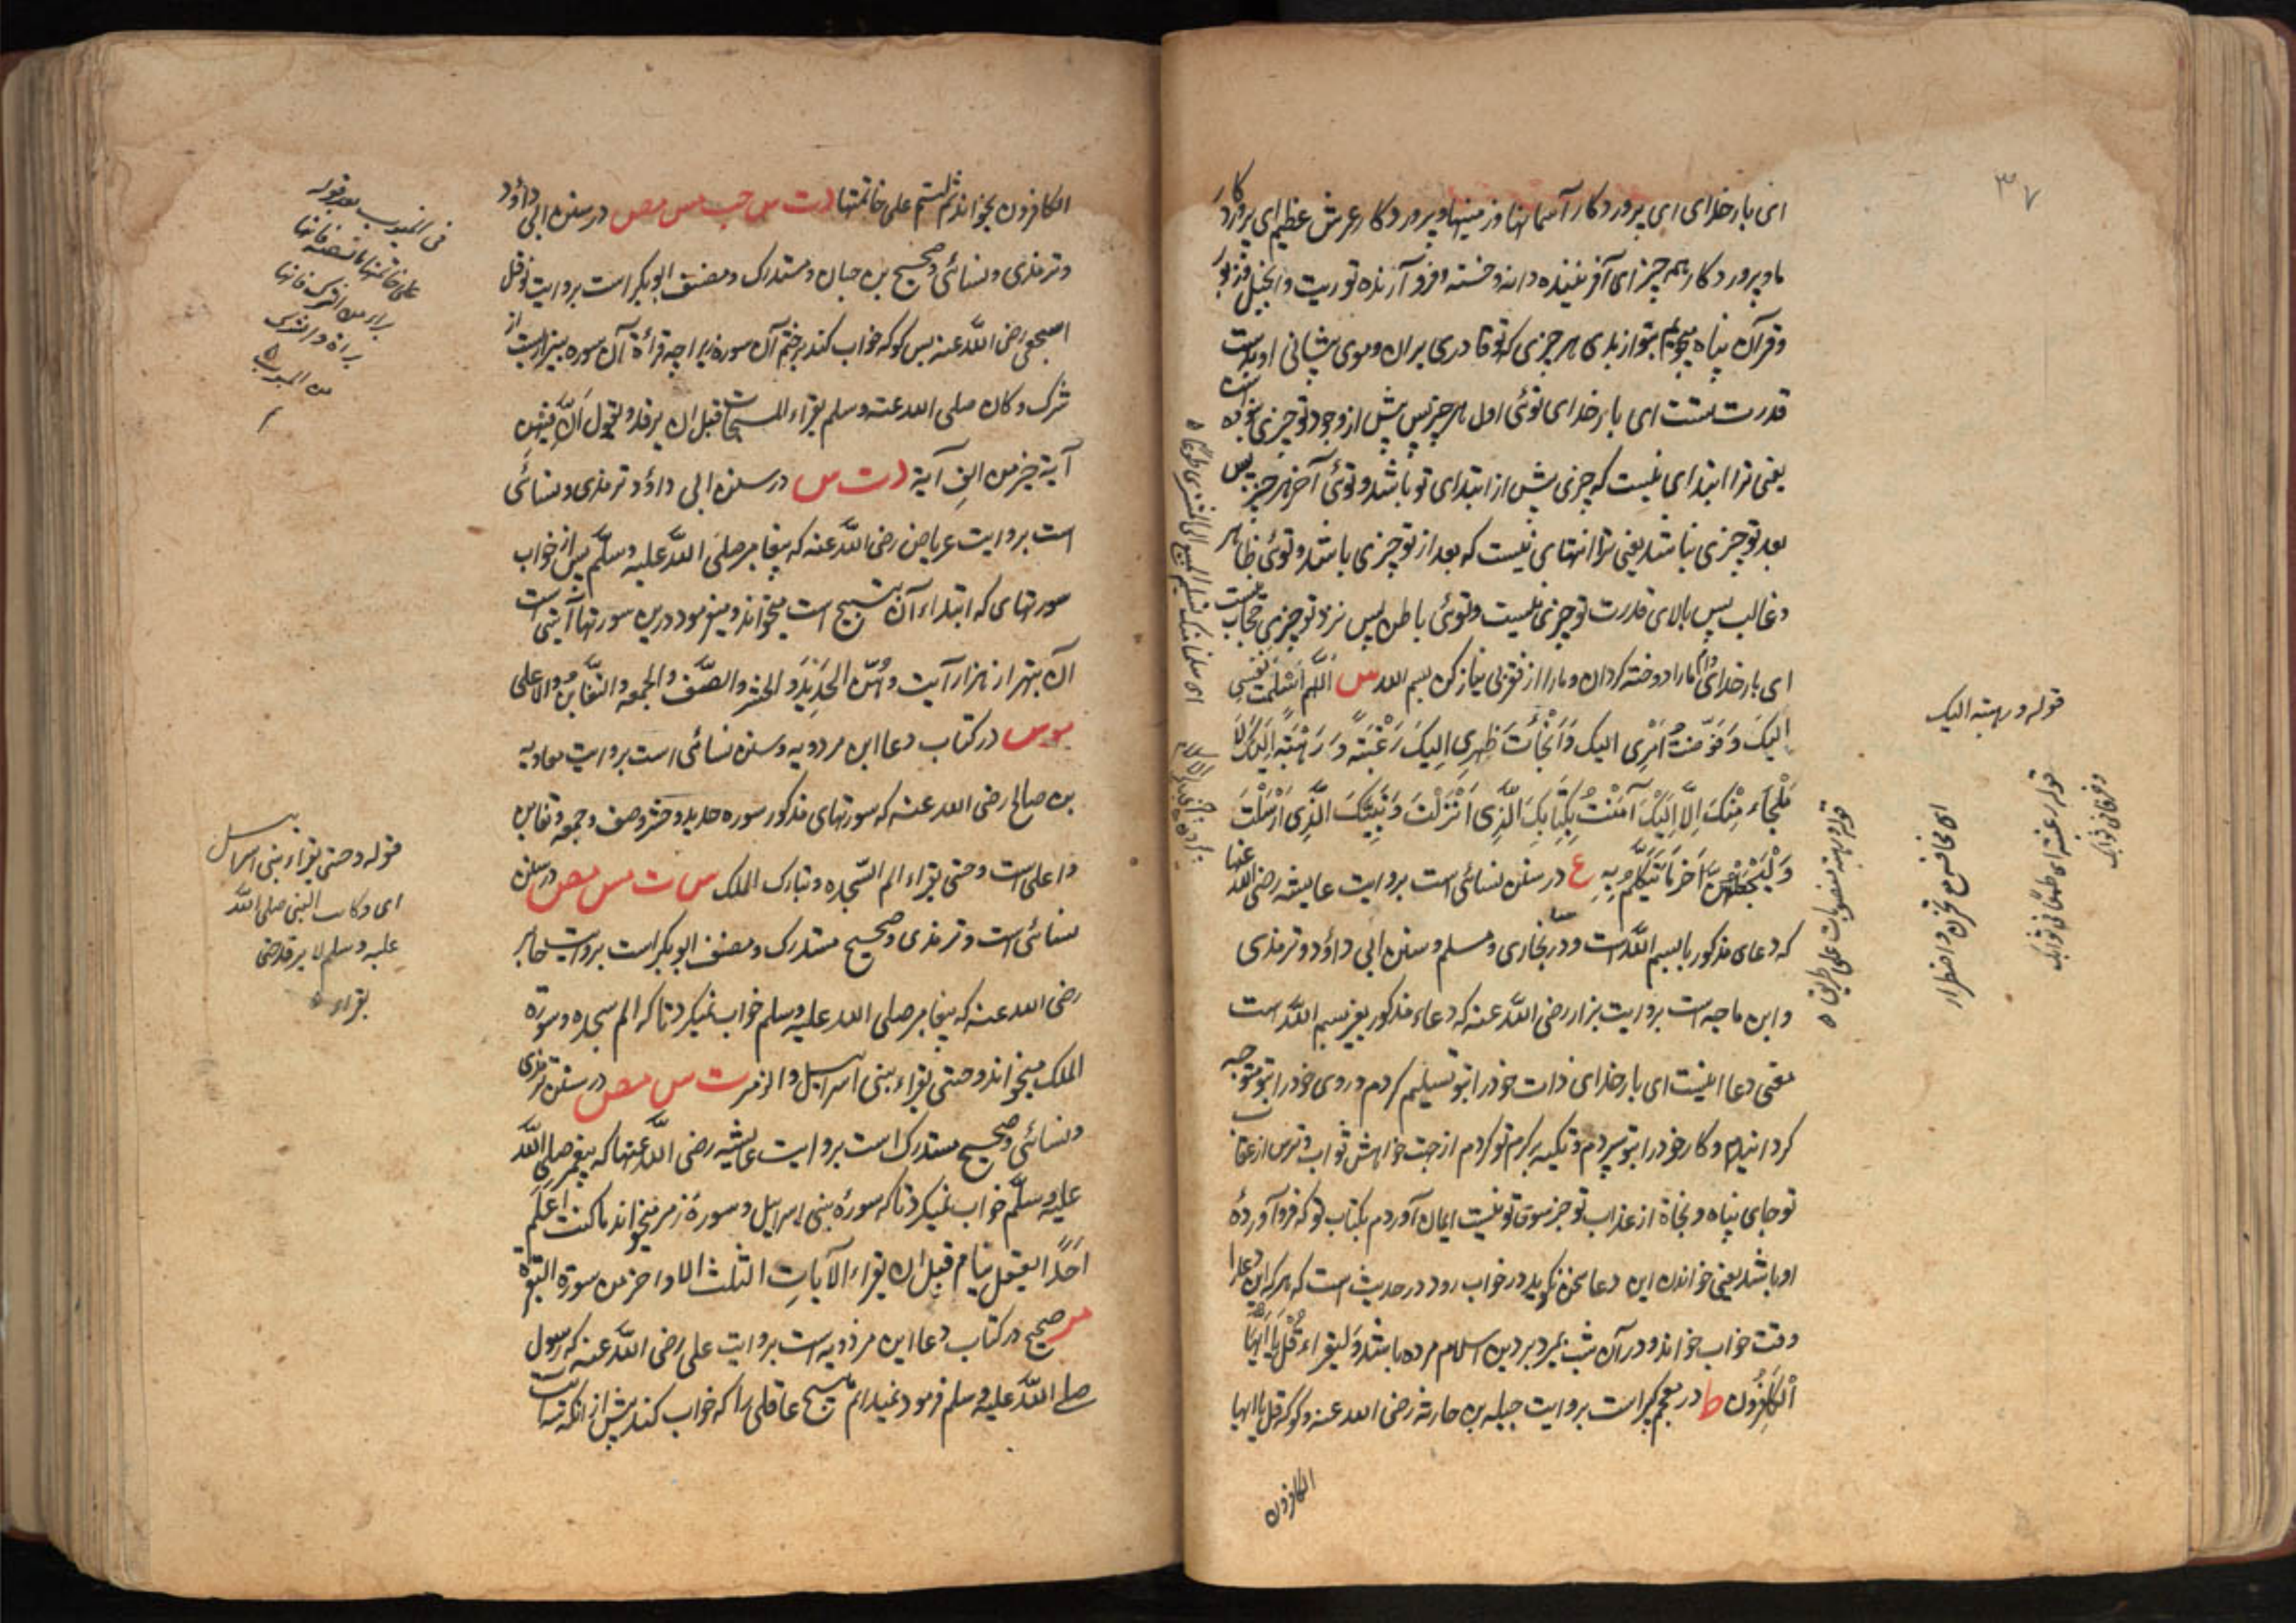 ۳۷
ای بار خدای ای پروردکار آسمانها و زمینها و پروردکار عرش عظیم ای پروردکار
ما و پروردکار همه چیز ای آفریننده دانه و خسته و فرو آرنده توریت و انجیل و زبور
و قرآن پناه میجویم بتو از بدی هر چیزی که تو قادری بران و موی پشانی او بدست
قدرت تست ای بار خدای توئی اول هر چیز پس پش از وجود تو چیزی نبوده است
یعنی ترا ابتدای نیست که چیزی پش از ابتدای تو باشد و توئی آخر هر چیز پس
بعد تو چیزی نباشد یعنی ترا انتهای نیست که بعد از تو چیزی باشد و توئی ظاهر
و غالب پس بالای قدرت تو چیزی نیست و توئی باطن پس نزد تو چیزی حجاب نیست
ای بار خدای وام مارا دوخته کردان و مارا از فقر بی نیاز کن بسم الله س اللهم اسلمت نفسی
الیک وَفَوَّضْتُ اَمْرِی الیک وَاَلْجَأْتُ ظَهرِی اِلیکَ رَغْبَتَهً وَ رَهْبَتَهً اِلَیکَ لَا
مَلْجَاءَ مِنْکَ اِلَّا اِلَیْکَ آمَنْتُ بِکِتَابِکَ الَّذِی اَنْزَلْتَ وَ نَبِیِّکَ الَّذِی اَرْسَلْتَ
وَلْیَجْعَلْهُنَّ آخَرَ مَا تَتَکَلَّمُ بِهِ ع در سنن نسائی است بروایت عایشه رضی الله عنها
که دعای مذکور با بسم الله است و در بخاری و مسلم و سنن ابی داؤد و ترمذی
و ابن ماجه است بروایت بزار رضی الله عنه که دعاء مذکور بغیر بسم الله است
معنی دعا اینست ای بار خدای ذات خود را بتو تسلیم کردم و روی خود را بتو متوجه
کردانیدم و کار خود را بتو سپردم و تکیه بر کرم تو کردم از جهت خواهش ثواب و ترس از عقاب
تو جای پناه و نجاة از عذاب تو جز سوی تو نیست ایمان آوردم بکتاب تو که فرو آوردۀ
او باشد یعنی خواندن این دعا سخن نکوید در خواب رود در حدیث است که هر که این دعا را
وقت خواب خواند و در آن شب بمیرد بر دین اسلام مرده باشد وَلیقراء قُل یا اَیُّهَا
اْلکَافِرُون ط در معجم کبر است بروایت جبله بن حارثه رضی الله عنه و کو که قل یا ایها
الکافرون
قوله و رهبته الیک
ای مخافه مع تحزن و اضطرار
قوله رغبته ای طمعا فی ثوابک
الکافرون بخواند ثم لیتم علی خاتمتها د ت س حب مس مص در سنن ابی داؤد
و ترمذی و نسائی و صحیح بن حبان و مستدرک و مصنف ابو بکر است بروایت نوفل
اشجعی رضی الله عنه پس کو که خواب کند بر ختم آن سوره زیراچه قرائة آن سوره بیزاریست از
شرک و کان صلی الله عنه وسلم یقراء المسبحات قبل ان یرقد و یقول اَنَّ فیهن
آیة خیر من الف آیة د ت س در سنن ابی داؤد و ترمذی و نسائی
است بروایت عرباض رضی الله عنه که پیغامبر صلی الله علیه وسلم پس از خواب
سورتهای که ابتداء آن تسبیح است میخواند و میفرمود درین سورتها آیتی است
آن بهتر از هزار آیت وهُنّ الحَدِیْد و الحشر والصَّف والجمعه والتغابن والاعلی
مو س در کتاب دعا ابن مردویه و سنن نسائی است بروایت معاویه
بن صالح رضی الله عنه که سورتهای مذکور سوره حدید و حشر و صف و جمعه و تغابن
و اعلی است وحتی یقراء الم السجده و تبارک الملک س ت مس مص در سنن
نسائی است و ترمذی و صحیح مستدرک و مصنف ابو بکر است بروایت جابر
رضی الله عنه که پیغامبر صلی الله علیه وسلم خواب نمیکرد تا که الم سجده و سورة
الملک میخواند وحتی یقراء بنی اسراییل والزمر ت س مص در سنن ترمذی
و نسائی و صحیح مستدرک است بروایت عایشه رضی الله عنها که پیغمبر صلی الله
علیه وسلم خواب نمیکرد تا که سورۀ بنی اسراییل و سورۀ زمر میخواند ما کنت اعلم
احدًا یعقل ینام قبل ان یقراء الآیاتِ الثلث الاواخر من سورة البقرة
مر صحیح در کتاب دعا ابن مردویه است بروایت علی رضی الله عنه که رسول
صلی الله علیه وسلم فرمود نمیدانم هیچ عاقلی را که خواب کند پش از آنکه سه آیت
قوله وحتی یقراء بنی اسراییل
ای و کان النبی صلی الله
علیه وسلم لا یرقد حتی
یقراء